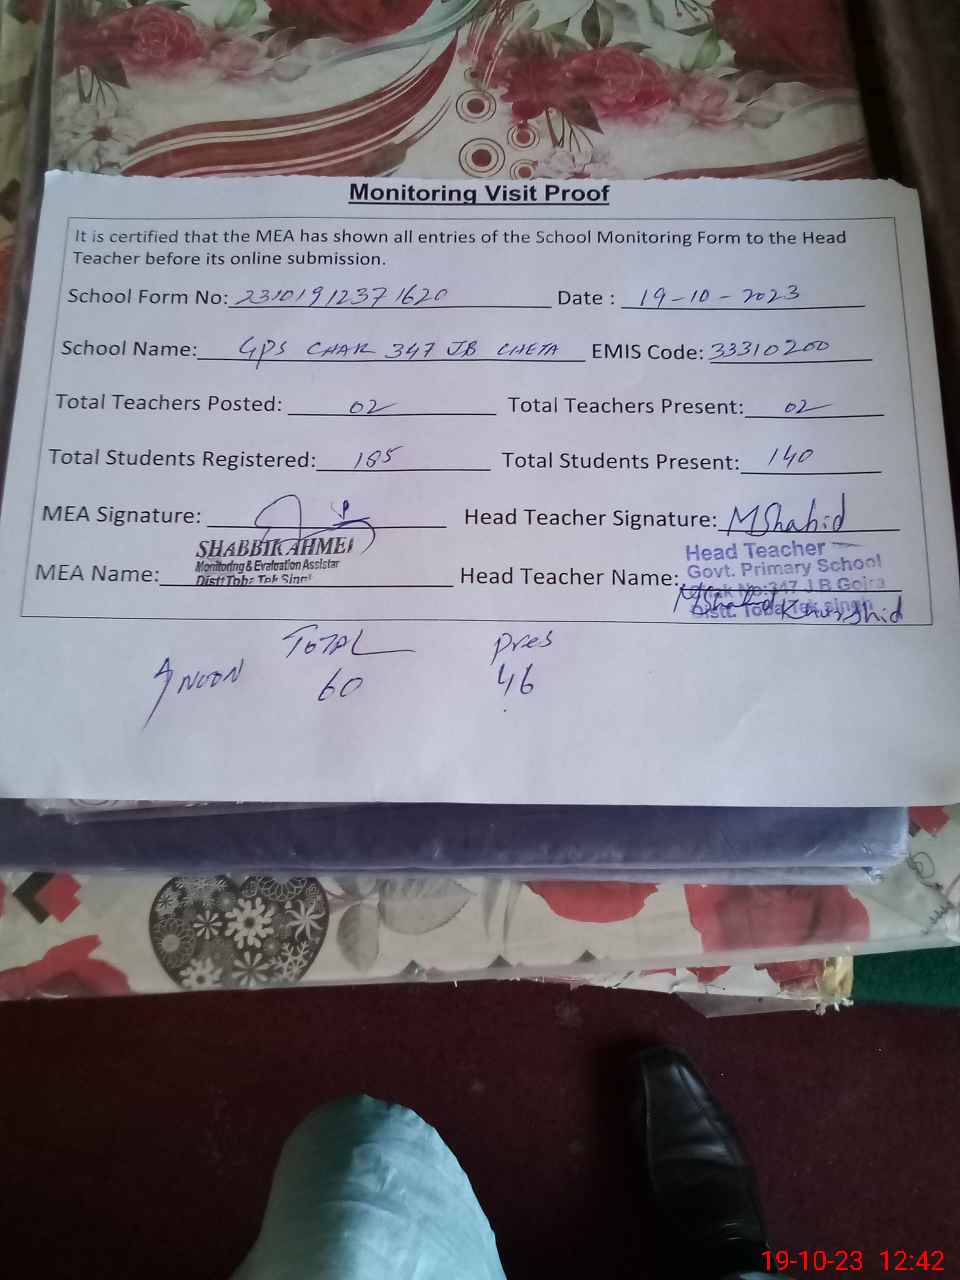 Monitoring Visit Proof
It is certified that the MEA has shown all entries of the School Monitoring Form to the Head
Teacher before its online submission.
School Form No: 23101912371620 Date : 19-10-2023
School Name: GPS CHAK 347 JB CHETA EMIS Code: 33310200
Total Teachers Posted: 02 Total Teachers Present: 02
Total Students Registered: 185 Total Students Present: 140
MEA Signature: Head Teacher Signature: MShahid
SHABBIR AHMED
Monitoring & Evaluation Assistan
Distt Toba Tek Singh
MEA Name: Head Teacher Name:
Head Teacher
Govt. Primary School
Chak No:347 J.B Gojra
Distt. Toba Tek singh
MShahid Khurshid
TOTAL Pres
NOON 60 46
19-10-23 12:42